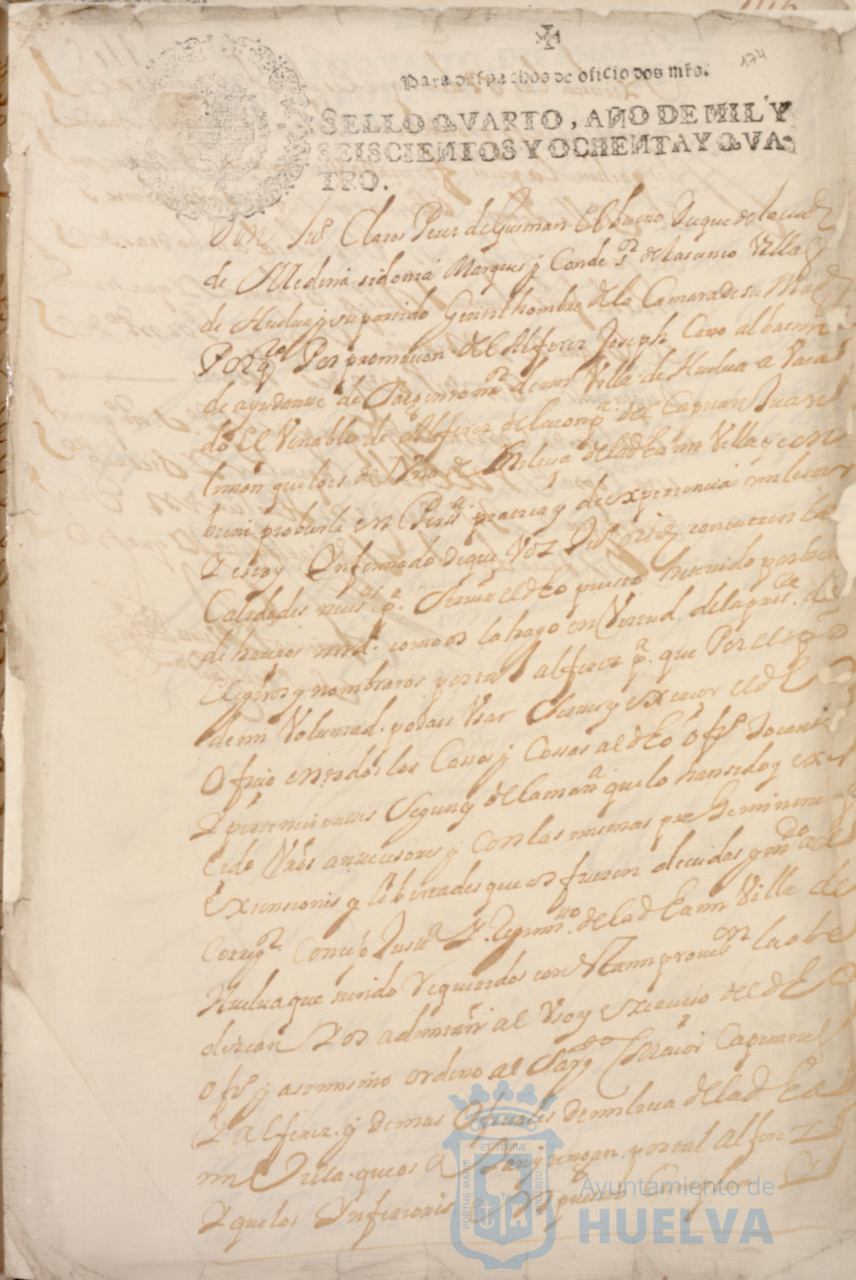 174
Para despachos de oficio dos mrs.
SELLO QVARTO, AÑO DE MIL Y
SEISCIENTOS Y OCHENTA Y QVA
TRO.
Don Juº Claros Perez de Guzman El bueno Duque de la ciud
de Medina sidonia Marques y Conde sr. de las Villa
de Huelva y su partido Gentil hombre de la Camara de su Magd
Por q.to Por promocion del Alferez Joseph Cano albarran
de ayudante de Sargento mr. de mi Villa de Huelva a Vaca
do El Venablo de Alferez de la compª. del Capitan Juan
que lo es de Una de Milicia de la dha mi Villa y con
biene proberle en Persª. pratica y de experiencia militar
Y estoy Ynformado de que Voz Juº concurren las
Calidades neces.as pª. Servir el dho puesto he tenido por bien
de haceros mrd. como os la hago en Virtud. de la preste. de
Elegiros y nombraros por tal alferez pª. que Por el tpo
de mi Voluntad. podais Usar Servir y exercer el dho
Oficio en todos los Cassos y Cossas al dho ofº tocantes
Y pertenecientes Segun y de la manª que lo han sido y ex
cido Vros antecesores y con las mismas preheminencias
Exsenciones y libertades que os fueren devidas y mdo al
Correg.or Concejo Justª Y Regim.to de la dha mi Villa de
Huelva que siendo requeridos con esta mi provi.on la obe
dezcan Y os admitan al Uso y exercicio del dho
ofº y asi mismo ordeno al Sargto Maior Capitanes
Y alferez y demas Oficiales de milicia de la dha
mi Villa que os ayan y tengan por tal Alferez
Y que los Ynferiores
ET TERRÆ
PORTUS MARIS
CUSTODIA
Ayuntamiento de
HUELVA